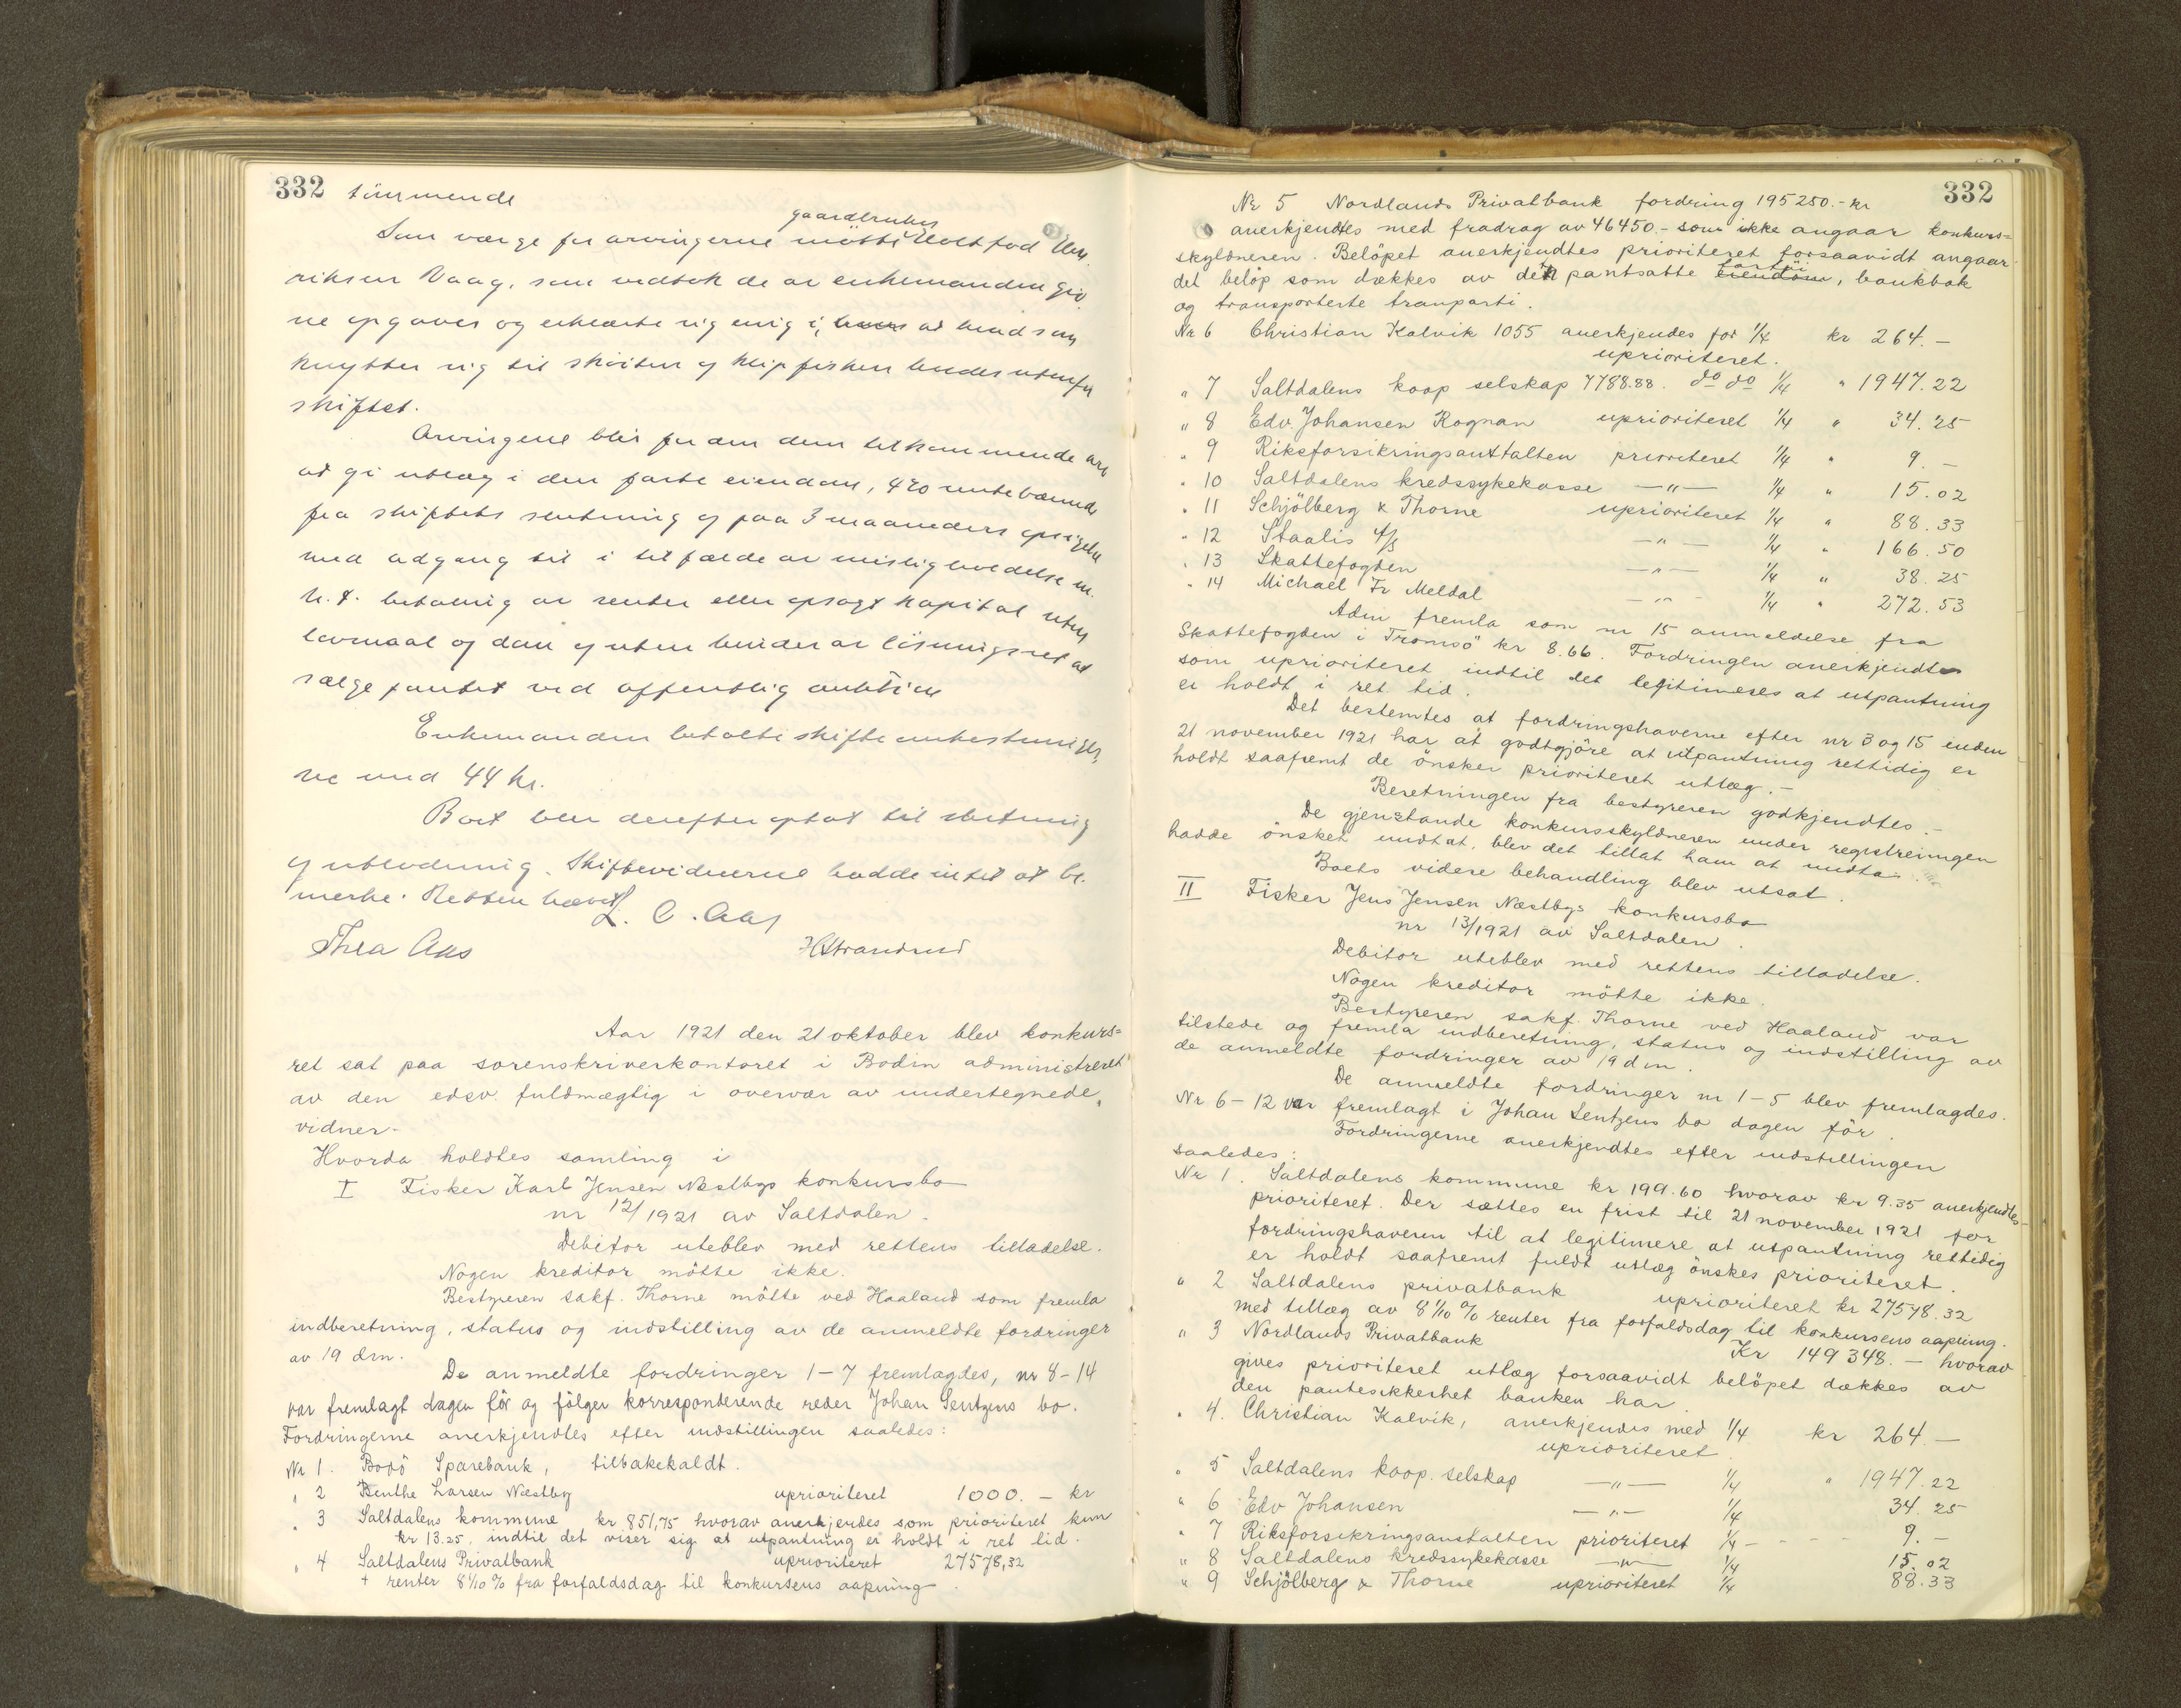 332 tömmende
gaardbruker
Som værge for arvingerne mötte Uldt fod Hen
riksen Vaag, som vedtok de av enkemanden giv
ne opgaver og erklærte sig enig i, at hvad som
knytter sig til skoiten og klipfisken holdes utenfor
skiftet.
Arvingene blir for den dem tilkommende arv
at gi utlæg i den faste eiendom, 4% rentebærende
fra skiftets slutning og paa 3 maaneders opsigelse
med adgang til i tilfælde av misligholdelse m.
h. t. betaling av renter eller opsagt kapital uten
lovmaal og dom og uten hinder av lösningsret at
sælge pantet ved offentlig auktion
Enkemanden betalte skifteomkostninger
ne med 44 kr.
Boet blev derefter optat til slutning
og utlodning. Skiftevidnerne hadde intet at be
merke. Retten hævet
L. C. Aas
Thea Aas HStrandrud
Aar 1921 den 21 oktober blev konkurs=
ret sat paa sorenskriverkontoret i Bodin administreret
av den edsv. fuldmægtig i overvær av undertegnede
vidner.
Hvorda holdtes samling i
I Fisker Karl Jensen Næstbys konkursbo
nr 12/1921 av Saltdalen.
Debitor uteblev med rettens tilladelse.
Nogen kreditor mötte ikke.
Bestyreren sakf. Thorne mötte ved Haaland som fremla
indberetning, status og indstilling av de anmeldte fordringer
av 19 dm.
De anmeldte fordringer 1-7 fremlagdes, nr 8-14
var fremlagt dagen för og fölger korresponderende reder Johan Sentzens bo.
Fordringerne anerkjendtes efter indstillingen saaledes:
Nr 1. Bodö Sparebank, tilbakekaldt.
" 2 Benthe Larsen Næstby uprioriteret 1000. - kr
" 3 Saltdalens kommune kr 851,75 hvorav anerkjendes som prioriteret kun
kr 13.25, indtil det viser sig at utpantning er holdt i ret tid.
" 4 Saltdalens Privatbank uprioriteret 27578,32
+ renter 8 1/10 % fra forfaldsdag til konkursens aapning
332
Nr 5 Nordlands Privatbank fordring 195250.- kr
anerkjendtes med fradrag av 46450.- som ikke angaar konkurs=
skyldneren. Belöpet anerkjendtes prioriteret forsaavidt angaar
fartöi
det belöp som dækkes av den pantsatte eiendom, bankbok
og transporterte tranparti.
Nr 6 Christian Kalvik 1055 anerkjendes for 1/4 kr 264.-
uprioriteret.
" 7 Saltdalens koop selskap 7788.88. do do 1/4 " 1947.22
" 8 Edv. Johansen Rognan uprioriteret 1/4 " 34.25
" 9 Riksforsikringsanstalten prioriteret 1/4 " 9.-
" 10 Saltdalens kredssykekasse -"- 1/4 " 15.02
" 11 Schjölberg & Thorne uprioriteret 1/4 " 88.33
" 12 Staalis A/S -"- 1/4 " 166.50
" 13 Skattefogden -"- 1/4 " 38.25
" 14 Michael Fr Meldal -"- 1/4 " 272.53
Adm fremla som nr 15 anmeldelse fra
Skattefogden i Tromsö kr 8.66. Fordringen anerkjendtes
som uprioriteret indtil det legitimeres at utpantning
er holdt i ret tid.
Det bestemtes at fordringshaverne efter nr 3 og 15 inden
21 november 1921 har at godtgjöre at utpantning rettidig er
holdt saafremt de önsker prioriteret utlæg.-
Beretningen fra bestyreren godkjendtes.-
De gjenstande konkursskyldneren under registreringen
hadde önsket undtat, blev det tillat ham at undta.
Boets videre behandling blev utsat.
II Fisker Jens Jensen Næstbys konkursbo
nr 13/1921 av Saltdalen.
Debitor uteblev med rettens tilladelse.
Nogen kreditor mötte ikke.
Bestyreren sakf. Thorne ved Haaland var
tilstede og fremla indberetning, status og indstilling av
de anmeldte fordringer av 19 dm.
De anmeldte fordringer nr 1-5 blev fremlagdes.
Nr 6-12 var fremlagt i Johan Sentzens bo dagen för.
Fordringerne anerkjendtes efter indstillingen
saaledes:
Nr 1. Saltdalens kommune kr 199.60 hvorav kr 9.35 anerkjendtes
prioriteret. Der sættes en frist til 21 november 1921 for
fordringshaveren til at legitimere at utpantning rettidig
er holdt saafremt fuldt utlæg önskes prioriteret.
" 2 Saltdalens privatbank uprioriteret kr 27578.32
med tillæg av 8 1/10 % renter fra forfaldsdag til konkursens aapning.
" 3 Nordlands Privatbank Kr 149348.- hvorav
gives prioriteret utlæg forsaavidt belöpet dækkes av
den pantesikkerhet banken har.
" 4. Christian Kalvik, anerkjendes med 1/4 kr 264.-
uprioriteret
" 5 Saltdalens koop. selskap -"- 1/4 " 1947.22
" 6 Edv Johansen -"- 1/4 34.25
" 7 Riksforsikringsanstalten prioriteret 1/4 - - - 9.-
" 8 Saltdalens kredssykekasse -"- 1/4 15.02
" 9 Schjölberg & Thorne uprioriteret 1/4 88.33